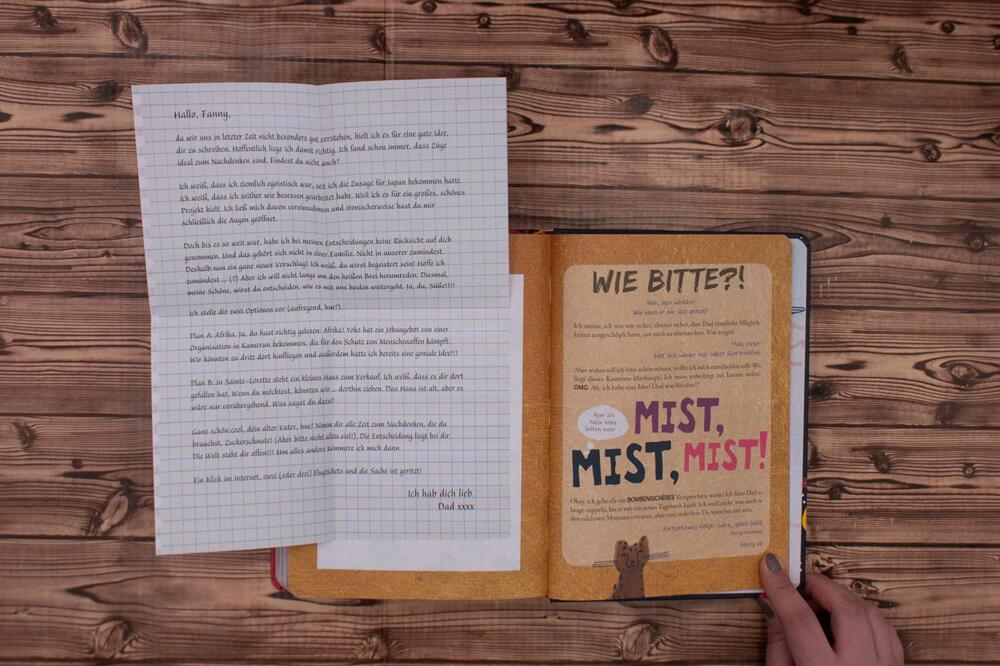 Hallo, Fanny,
da wir uns in letzter Zeit nicht besonders gut verstehen, hielt ich es für eine gute Idee,
dir zu schreiben. Hoffentlich liege ich damit richtig. Ich fand schon immer, dass Züge
ideal zum Nachdenken sind. Findest du nicht auch?
Ich weiß, dass ich ziemlich egoistisch war, seit ich die Zusage für Japan bekommen hatte.
Ich weiß, dass ich seither wie besessen gearbeitet habe. Weil ich es für ein großes, schönes
Projekt hielt. Ich ließ mich davon vereinnahmen und ironischerweise hast du mir
schließlich die Augen geöffnet.
Doch bis es so weit war, habe ich bei meinen Entscheidungen keine Rücksicht auf dich
genommen. Und das gehört sich nicht in einer Familie. Nicht in unserer zumindest.
Deshalb nun ein ganz neuer Vorschlag! Ich weiß, du wirst begeistert sein! Hoffe ich
zumindest ... (?) Aber ich will nicht lange um den heißen Brei herumreden. Diesmal,
meine Schöne, wirst du entscheiden, wie es mit uns beiden weitergeht. Ja, du, Süße!!!!
Ich stelle dir zwei Optionen vor (aufregend, hm?).
Plan A: Afrika. Ja, du hast richtig gelesen: Afrika! Yoko hat ein Jobangebot von einer
Organisation in Kamerun bekommen, die für den Schutz von Menschenaffen kämpft.
Wir könnten zu dritt dort hinfliegen und außerdem hatte ich bereits eine geniale Idee!!!
Plan B: In Sainte-Lorette steht ein kleines Haus zum Verkauf. Ich weiß, dass es dir dort
gefallen hat. Wenn du möchtest, könnten wir ... dorthin ziehen. Das Haus ist alt, aber es
wäre nur vorübergehend. Was sagst du dazu?
Ganz schön cool, dein alter Vater, hm? Nimm dir alle Zeit zum Nachdenken, die du
brauchst, Zuckerschnute! (Aber bitte nicht allzu viel!). Die Entscheidung liegt bei dir.
Die Welt steht dir offen!!! Um alles andere kümmere ich mich dann.
Ein Klick im Internet, zwei (oder drei) Flugtickets und die Sache ist geritzt!
Ich hab dich lieb.
Dad xxxx
WIE BITTE?!
Nein, also wirklich!
Wie kann er mir das antun?
Ich meine, ich war mir sicher, absolut sicher, dass Dad sämtliche Möglich-
keiten ausgeschöpft hatte, um mich zu überraschen. Von wegen!
Mein Vater
hat sich wieder mal selbst übertroffen.
Aber woher soll ich bitte schön wissen, wofür ich mich entscheiden soll? Wo
liegt dieses Kamerun überhaupt? Ich muss unbedingt mit Lorette reden!
OMG. Ah, ich hatte eine Idee! Und was für eine!!
Aber ich
habe keine
Seiten mehr ...
MIST,
MIST, MIST!
Okay, ich gebe dir ein BOMBENSICHERES Versprechen, wenn! Ich lasse Dad so
lange zappeln, bis er mir ein neues Tagebuch kauft. Ich weiß nicht, was mich in
den nächsten Monaten erwartet, aber eins steht fest: Du wirst bei mir sein.
Fortsetzung folgt. Ganz, ganz bald.
Versprochen!
Fanny xx